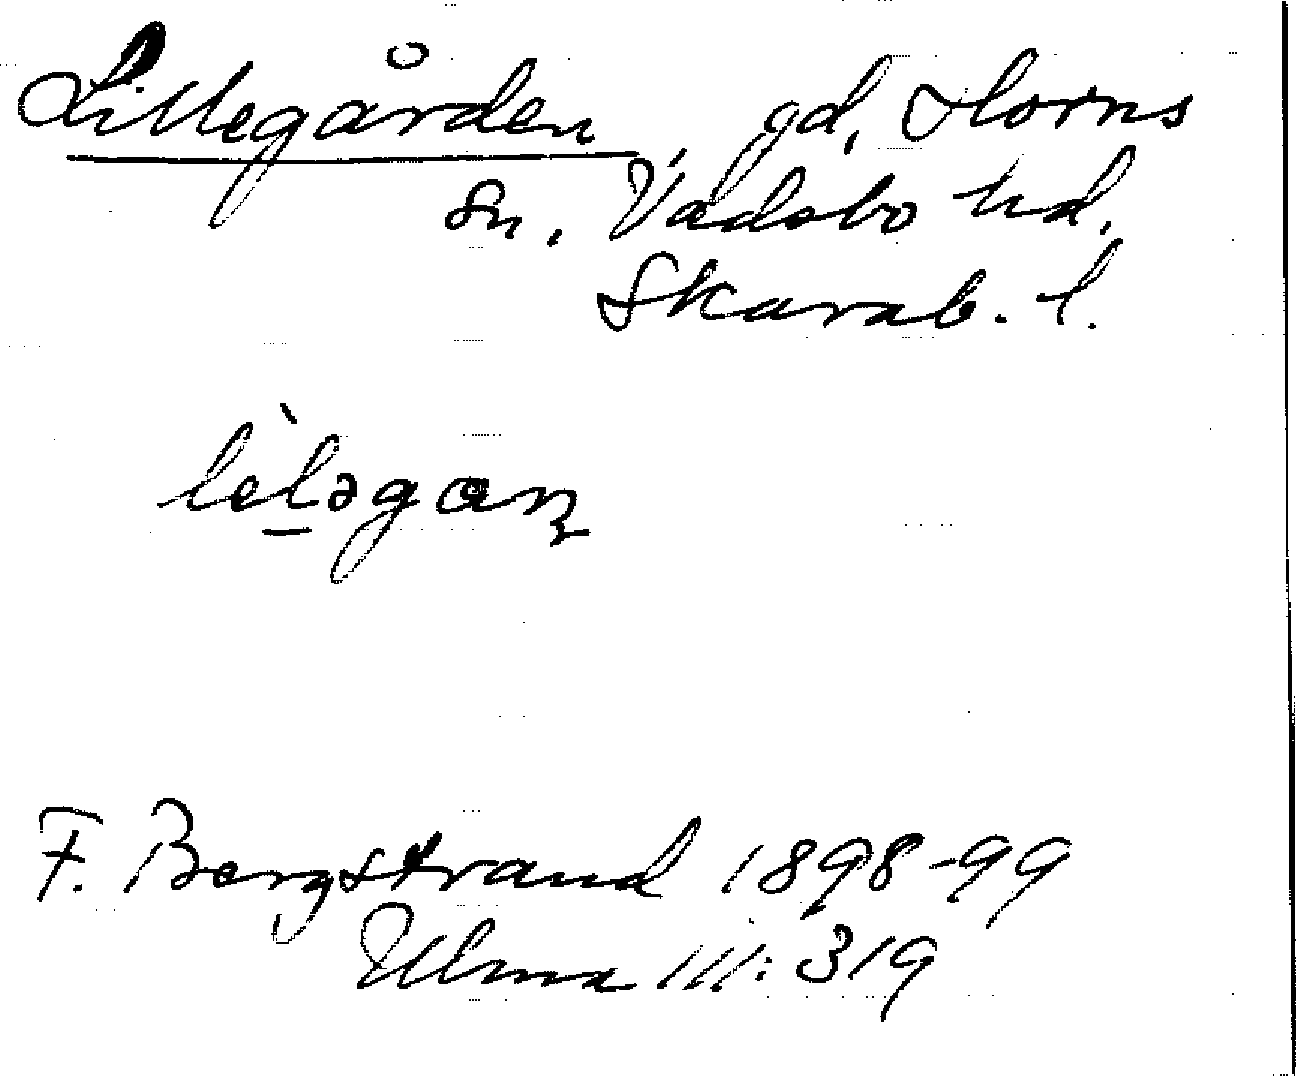 Lillegården, gd, Horns
sn. Vadsbo hd.
Skarab. l.
lèlegaɳ
F. Bergstrand 1898-99
Ulma 111:319